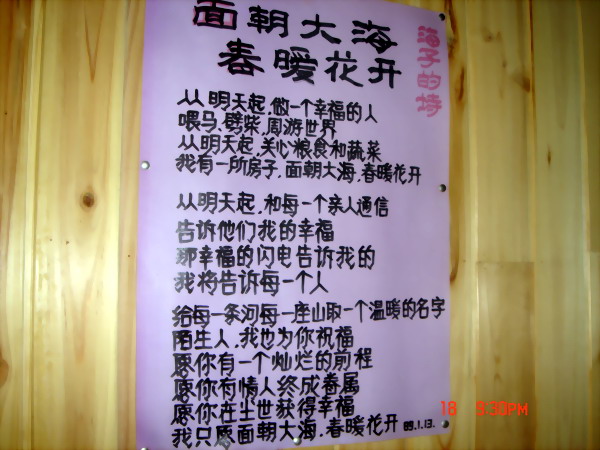 面朝大海
春暖花开
海子的诗
从明天起,做一个幸福的人
喂马、劈柴,周游世界
从明天起,关心粮食和蔬菜
我有一所房子,面朝大海,春暖花开
从明天起,和每一个亲人通信
告诉他们我的幸福
那幸福的闪电告诉我的
我将告诉每一个人
给每一条河每一座山取一个温暖的名字
陌生人,我也为你祝福
愿你有一个灿烂的前程
愿你有情人终成眷属
愿你在土世获得幸福
我只愿面朝大海,春暖花开 89.1.13.
18 9:30PM